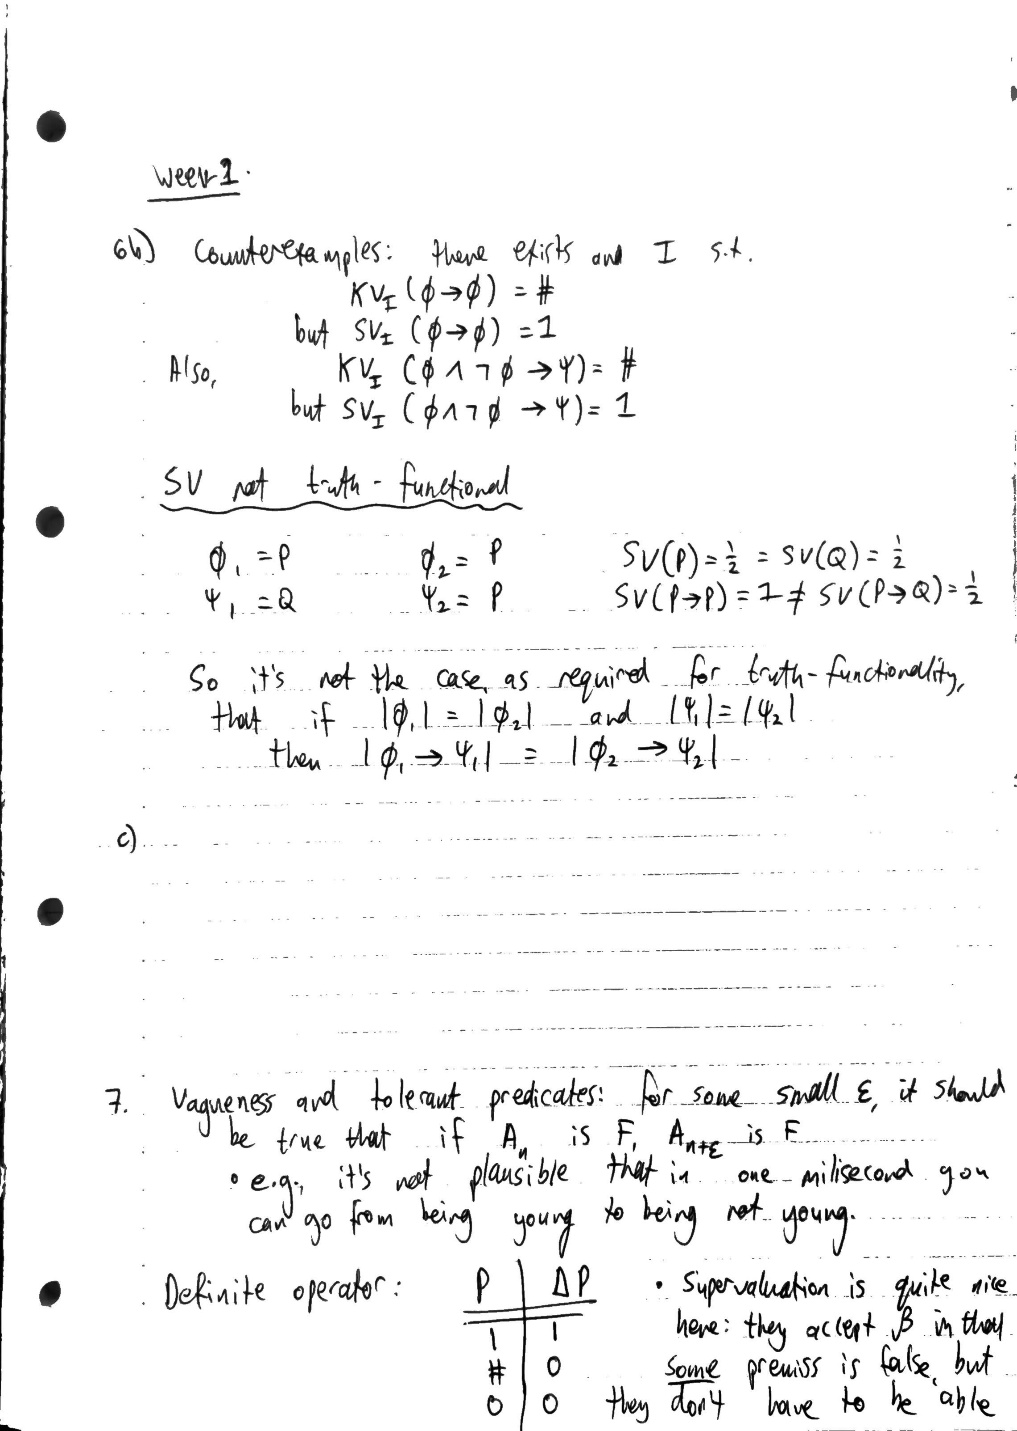 Week 1.
6b) Counterexamples: there exists and I s.t.
KV_I (ϕ→ϕ) = #
but SV_I (ϕ→ϕ) = 1
Also, KV_I (ϕ ∧ ¬ϕ → Ψ) = #
but SV_I (ϕ∧¬ϕ → Ψ) = 1
SV not truth-functional
ϕ₁ = P ϕ₂ = P SV(P) = ½ = SV(Q) = ½
Ψ₁ = Q Ψ₂ = P SV(P→P) = 1 ≠ SV(P→Q) = ½
So it's not the case, as required for truth-functionality,
that if |ϕ₁| = |ϕ₂| and |Ψ₁| = |Ψ₂|
then |ϕ₁ → Ψ₁| = |ϕ₂ → Ψ₂|
c)
7. Vagueness and tolerant predicates: for some small ε, it should
be true that if Aₙ is F, A_{n+ε} is F
• e.g., it's not plausible that in one milisecond you
can go from being young to being not young.
Definite operator: P | ΔP • Supervaluation is quite nice
1 | 1 here: they accept β in that
# | 0 some premiss is false, but
0 | 0 they don't have to be able